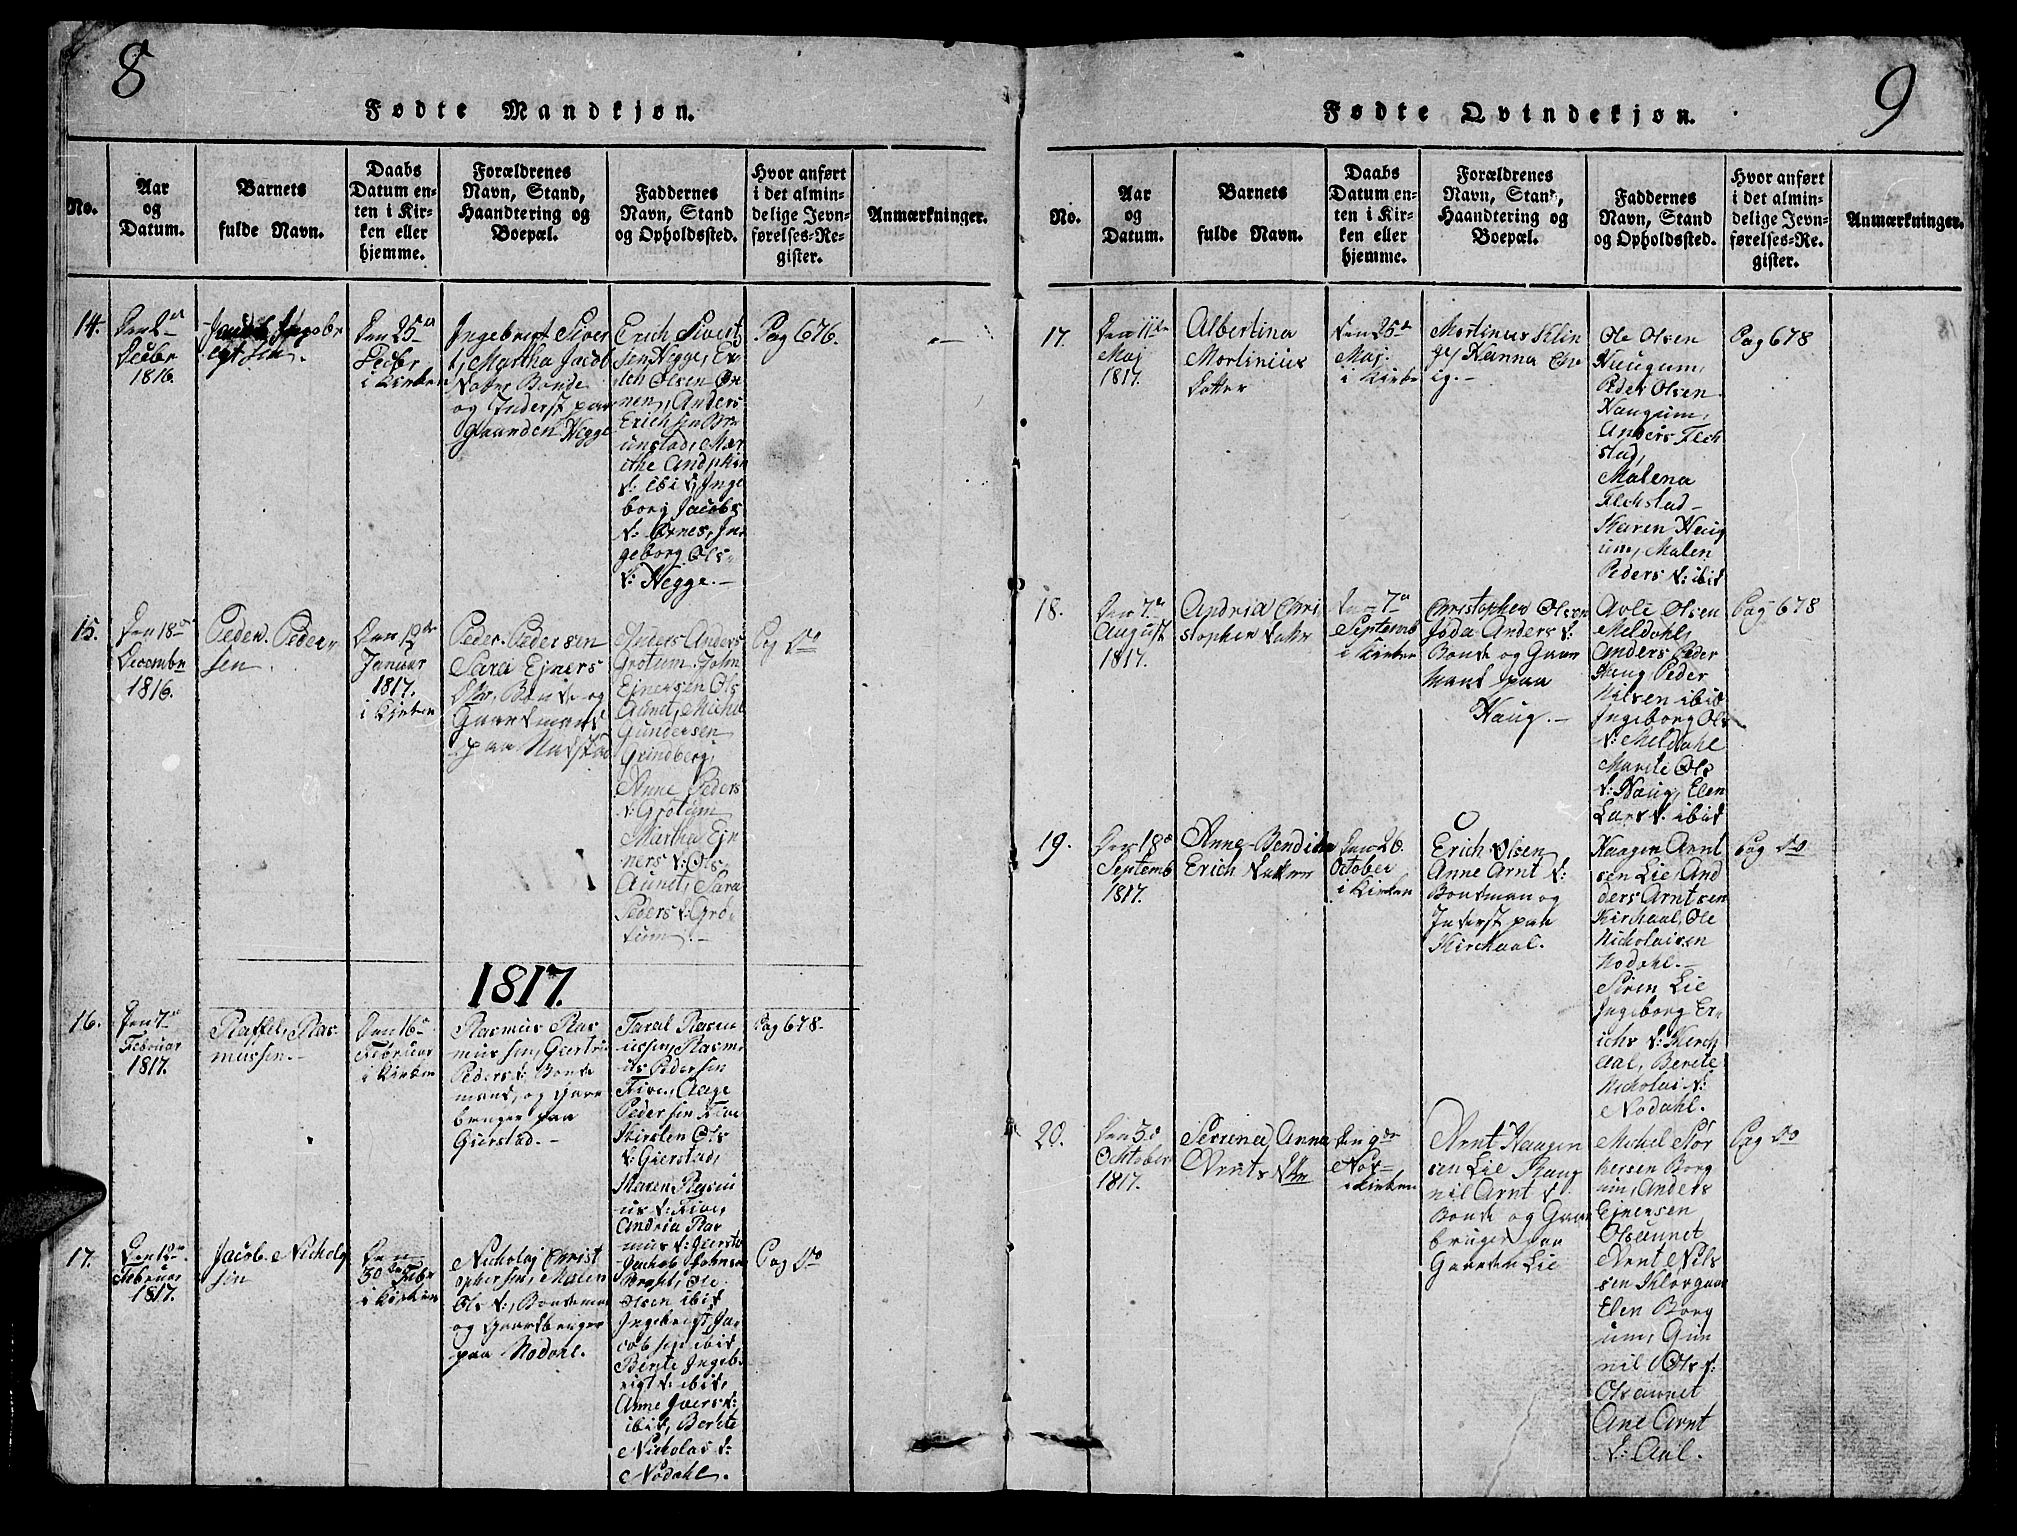 8
Fødte Mandkjøn.
No.
Aar
og
Datum.
Barnets
fulde Navn.
Daabs
Datum en-
ten i Kir-
ken eller
hjemme.
Forældrenes
Navn, Stand,
Haandtering og
Boepæl.
Faddernes
Navn, Stand
og Opholdssted.
Hvor anført
i det almin-
delige Jevn-
førelses-Re-
gister.
Anmærkninger.
14.
1816.
Den 25
i Kirken
Ingebrigt Siver
Martha Jacob
Bonde
og Inderst paa
Gaarden Hegge
Erich Sivert
sen Hegge, Er
ich Olsen
nen, Anders
Erichsen Br
unstad, Mar
ithe
d: ibid, Inge
borg Jacobs
d: Ornes, In
geborg Ols
d: Hegge.-
Pag 676.
15.
Den 18
Decembr
1816.
Peder Peder
sen
Den 12
Januar
1817.
i Kirken
Peder Pedersen
Sara Ejners
Bonde og
Gaardmand
paa
Anders Anders
Grotum, John
Ejnersen Ols
Aunet, Michel
Gundersen
Grindberg,
Anne Peders
d: Grotum
Martha Ejn
ners d: Ols
Aunet, Sara
Peders d: Gro
tum.-
Pag Do
1817.
16.
Den 7
Februar
1817.
Raffel Ras
mussen.-
Den 16
Februar
i Kirken
Rasmus Ras
mussen, Giertru
Peders d, Bonde
mand, og Gaard
bruger paa
Gierstad.-
Taral Rasm
ussen, Rasm
us Pedersen
Five, Aage
Pedersen Five
Kirsten Ols
d: Gierstad,
Maren Rasm
us d: Five,
Andria Ras
mus d: Giersta
Pag 678-
17.
Den 18
Februar
1817.
Jacob Nicholaj
sen
Den
30 Febr
i Kirken
Nicholaj Christ
ophersen, Malen
Ols d:, Bondeman
og Gaardbruger
paa Nodahl.
Jachob Johnsen
Ole
Olsen ibid
Ingebrigt Ja
cobsen ibid
Berite Ingeb
rigt d: ibid,
Anne Ivers d:
ibid, Berite
Nicholai d:
Nodahl.
Pag Do
9
Fødte Qvindekjøn.
No.
Aar
og
Datum.
Barnets
fulde Navn.
Daabs
Datum en-
ten i Kir-
ken eller
hjemme.
Forældrenes
Navn, Stand,
Haandtering og
Boepæl.
Faddernes
Navn, Stand
og Opholdssted.
Hvor anført
i det almin-
delige Jevn-
førelses-Re-
gister.
Anmærkninger.
17.
Den 11te
Maj
1817.
Albertina
Mortinius
Datter
Den 25
Maj
i Kirke
Mortinus Klin
Hanna
Ole Olsen
Haugum,
Peder Olsen
Haugum,
Anders Flek
stad,
Malena
Flekstad-
Karen Haug
um, Malen
Peders d: ibid
Pag 678
18.
Den 7
August
1817.
Andria Chri
stopher Datter
Den 7
Septemb
i Kirken
Christopher Olsen
Anders d:
Bonde og Gaar
Mand paa
Haug.-
Avle Olsen
Meldahl,
Anders Peder
Haug, Peder
Nilsen ibid
Ingeborg Ols
d: Meldahl
Marite Ols
d: Haug, Elen
Lars d: ibid
Pag 678
19.
Den 18
Septemb
1817.
Anne Bendicta
Erich Datter
Den 26
October
i Kirken
Erich Olsen
Anne Arnt d:
Bondman og
Inderst paa
Kirchaal.
Haagen Arnt
sen Lie, And
ders Arntsen
Kirchaal, Ole
Nicholaisen
Nodahl.-
Siren Lie
Ingeborg Er
ichs d: Kirch
Aal, Berete
Nicholai d:
Nodahl.
Pag Do
20.
Den 5
October
1817.
Serrina Anna
Arnts
Den 9de
Nov
i Kirken
Arnt Haagen
sen Lie Raag
nil Arnt d:
Bonde og Gaar
bruger paa
Gaarden Lie
Michel Tor
bersen Borg
um, Anders
Ejnersen
Olsaunet
Arnt Nils
sen
Elen Borg
um, Gun
nil Ols d:
Olsaunet
Ane Arnt
d: Aal.
Pag Do